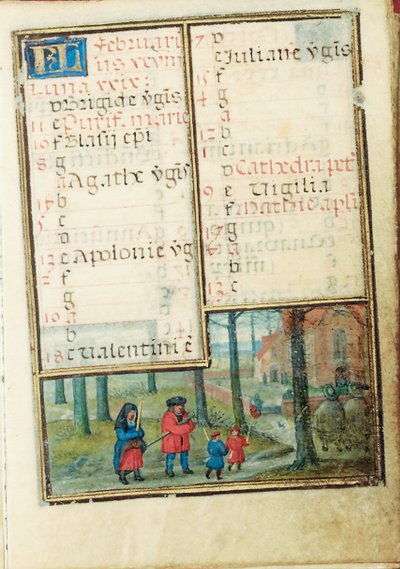 KL Februari
us xxviii
Luna xxix:
d Brigide vgis
11 e Purif marie
f Blasii epi
g
a Agathe vgis
b
c
d
e Apolonie vg
f
g
10 a
b
18 c Valentini
7 d
e Juliane vgis
15 f
4 g
a
12 b
1 c
d Cathedra pet
9 e Vigilia
f Mathie apli
17 g
6 a
b
c